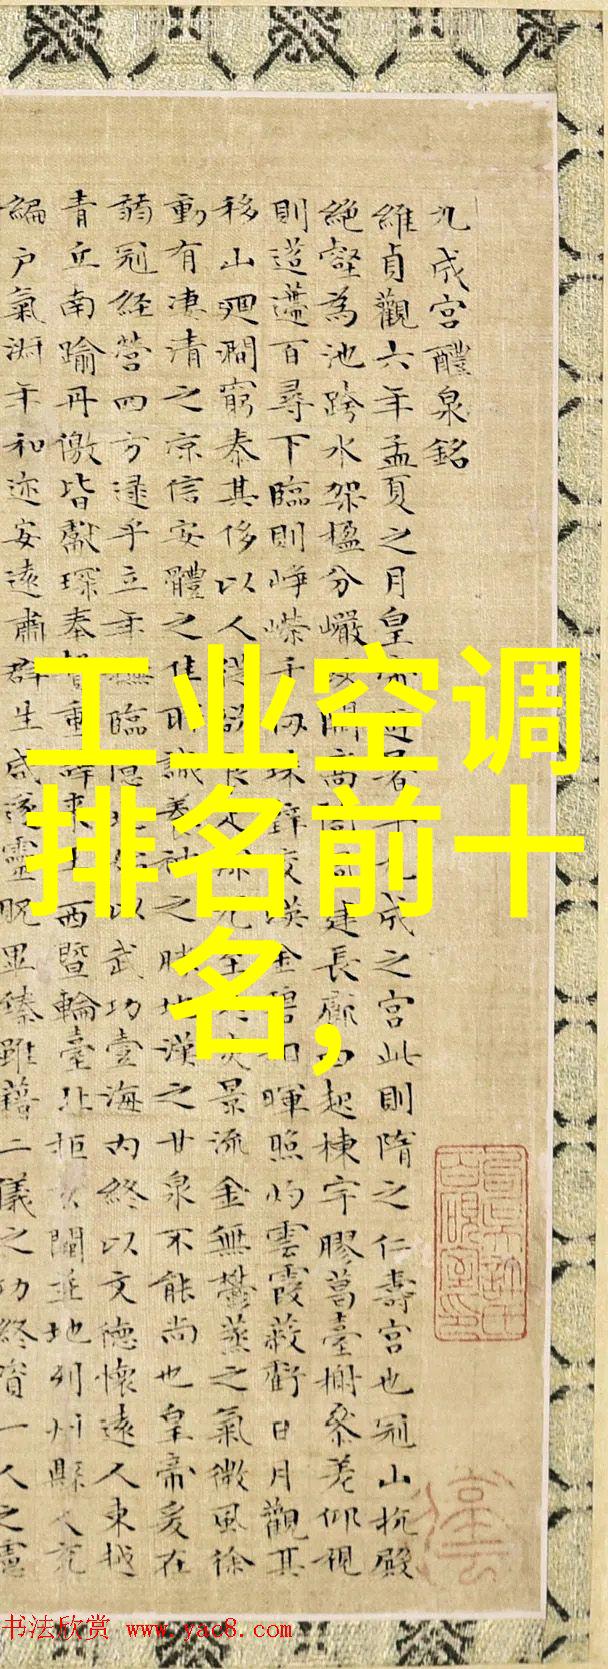 九成宮醴泉銘
維貞觀六年孟夏之月皇帝避暑乎九成之宮此則隋之仁壽宮也冠山抗殿
絕壑為池跨水架楹分巖闕高閣建長廊四起棟宇膠葛臺榭參差仰視
則迢遰百尋下臨則崢嶸千仞珠璧交暎金碧相暉照灼雲霞蔽虧日月觀其
移山迴澗窮泰其侈以人從欲良足深尤至炎景流金無鬱蒸之氣微風徐
動有淒清之涼信安體之佳所誠養神之勝地漢之甘泉不能尚也皇帝爰在
弱冠經營四方逮乎立年撫臨億以武功壹海內終以文德懷遠人東越
青丘南踰丹徼皆獻琛奉贄重譯來王西暨輪臺北拒玄闕並地列州縣人充
編戶氣淑年和迩安遠肅群生咸遂靈貺畢臻雖藉二儀之功終資一人之慮
工业空调
排名前十
名,
书法欣赏 www.yac8.com